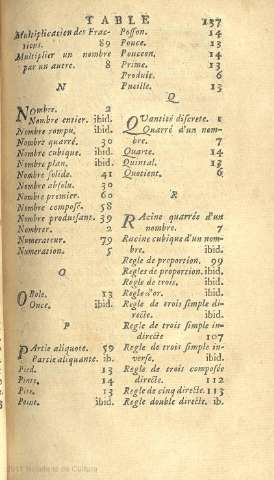 TABLE 137
Multiplication des Fractions. 89
Multiplier un nombre
par un autre. 8
N
Nombre. 2
Nombre entier. ibid.
Nombre rompu, ibid.
Nombre quarré. 30
Nombre cubique. ibid.
Nombre plan. ibid.
Nombre solide. 41
Nombre absolu. 30
Nombre premier. 60
Nombre composé. 58
Nombre produisant. 39
Nombrer. 2
Numerateur. 79
Numeration. 5
O
Obole. 13
Once. ibid.
P
Partie aliquote. 59
Partie aliquante. ib.
Pied. 13
Pinte. 14
Pite. 13
Point. ibid.
Posson. 14
Pouce. 13
Pouccon. 14
Prime. 13
Produit. 6
Pucille. 13
Q
Quantité discrete. 1
Quarré d'un nom-
bre. 7
Quarte. 14
Quintal. 13
Quotient. 6
R
Racine quarrée d'un
nombre. 7
Racine cubique d'un nom-
bre. ibid.
Regle de proportion. 99
Regles de proportion. ibid.
Regle de trois. ibid.
Regle d'or. ibid.
Regle de trois simple di-
recte. ibid.
Regle de trois simple in-
directe 107
Regle de trois simple in-
verse. ibid.
Regle de trois composée
directe. 112
Regle de cinq directe. 113
Regle double directe. ib.
2011 Ministerio de Cultura